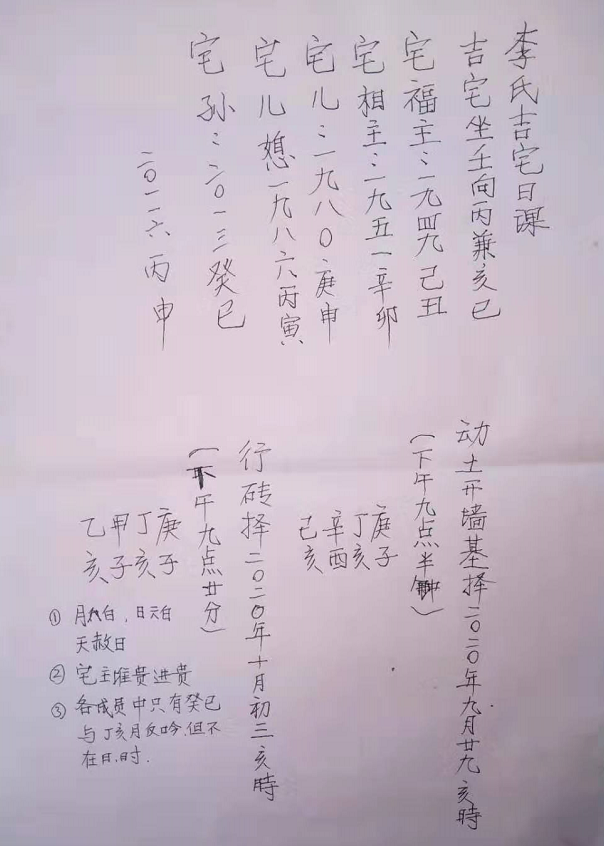 李氏吉宅日课
吉宅坐壬向丙兼亥巳
宅福主:一九四九己丑
宅相主:一九五一辛卯
宅儿:一九八〇庚申
宅儿媳一九八六丙寅
宅孙:二〇一三癸巳
二〇一六丙申
动土开墙基择二〇二〇年九月廿九亥時
(下午九点半钟)
庚子
丁亥
辛酉
己亥
行砖择二〇二〇年十月初三亥時
(下午九点廿分)
庚子
丁亥
甲子
乙亥
① 月白,日白
天赦日
② 宅主堆贵进贵
③ 各成员中只有癸巳
与丁亥月反吟,但不
在日.时.